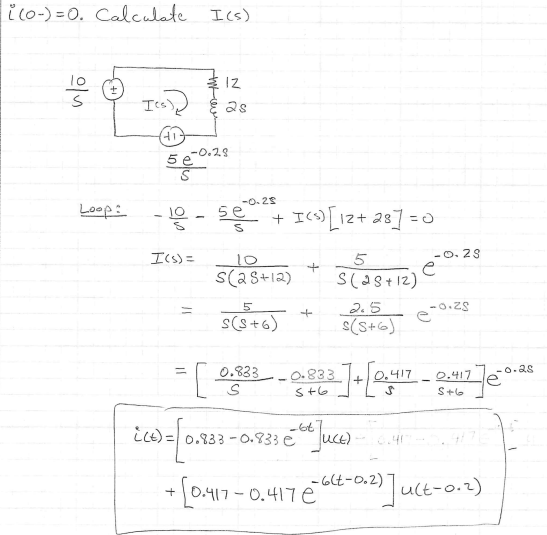 i(0-)=0. Calculate I(s)
10/s
12
I(s)
2s
± 
+ı
5e^-0.2s/s
Loop: -10/s - 5e^-0.2s/s + I(s)[12+2s]=0
I(s)= 10/s(2s+12) + 5/s(2s+12) e^-0.2s
= 5/s(s+6) + 2.5/s(s+6) e^-0.2s
= [0.833/s - 0.833/s+6]+[0.417/s - 0.417/s+6]e^-0.2s
i(t)=[0.833-0.833e^-6t]u(t)
+[0.417-0.417e^-6(t-0.2)]u(t-0.2)